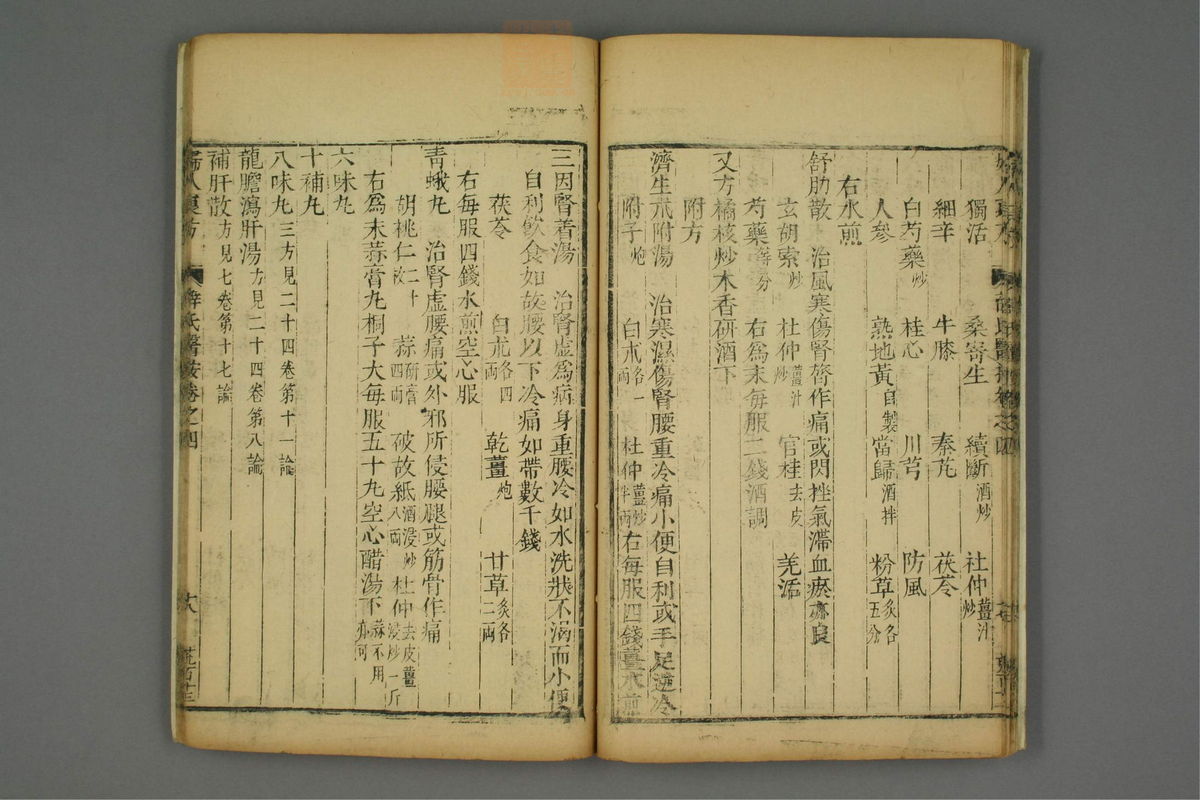 獨活　桑寄生　續斷酒炒　杜仲薑汁炒
細辛　牛膝　秦艽　茯苓
白芍藥炒　桂心　川芎　防風
人參　熟地黃自製　當歸酒拌　粉草炙各五分
右水煎
舒肋散　治風寒傷腎膂作痛或閃挫氣滯血瘀亦良
玄胡索炒　杜仲薑汁炒　官桂去皮　羌活
芍藥等分　右爲末每服二錢酒調
又方橘核炒木香研酒下
附方
濟生朮附湯　治寒濕傷腎腰重冷痛小便自利或手足逆冷
附子炮　白朮各一兩　杜仲薑炒半兩　右每服四錢薑水煎
三因腎着湯　治腎虛爲病身重腰冷如水洗狀不渴而小便
自利飲食如故腰以下冷痛如帶數千錢
茯苓　白朮各四兩　乾薑炮　甘草炙各二兩
右每服四錢水煎空心服
青蛾丸　治腎虛腰痛或外邪所侵腰腿或筋骨作痛
胡桃仁二十枚　蒜研膏四兩　破故紙酒浸炒八兩　杜仲去皮薑浸炒一斤
右爲末蒜膏丸桐子大每服五十丸空心醋湯下蒜不用亦可
六味丸
十補丸
八味丸三方見二十四卷第十一論
龍膽瀉肝湯方見二十四卷第八論
補肝散方見七卷第十七論
婦人良方　薛氏醫按卷之四